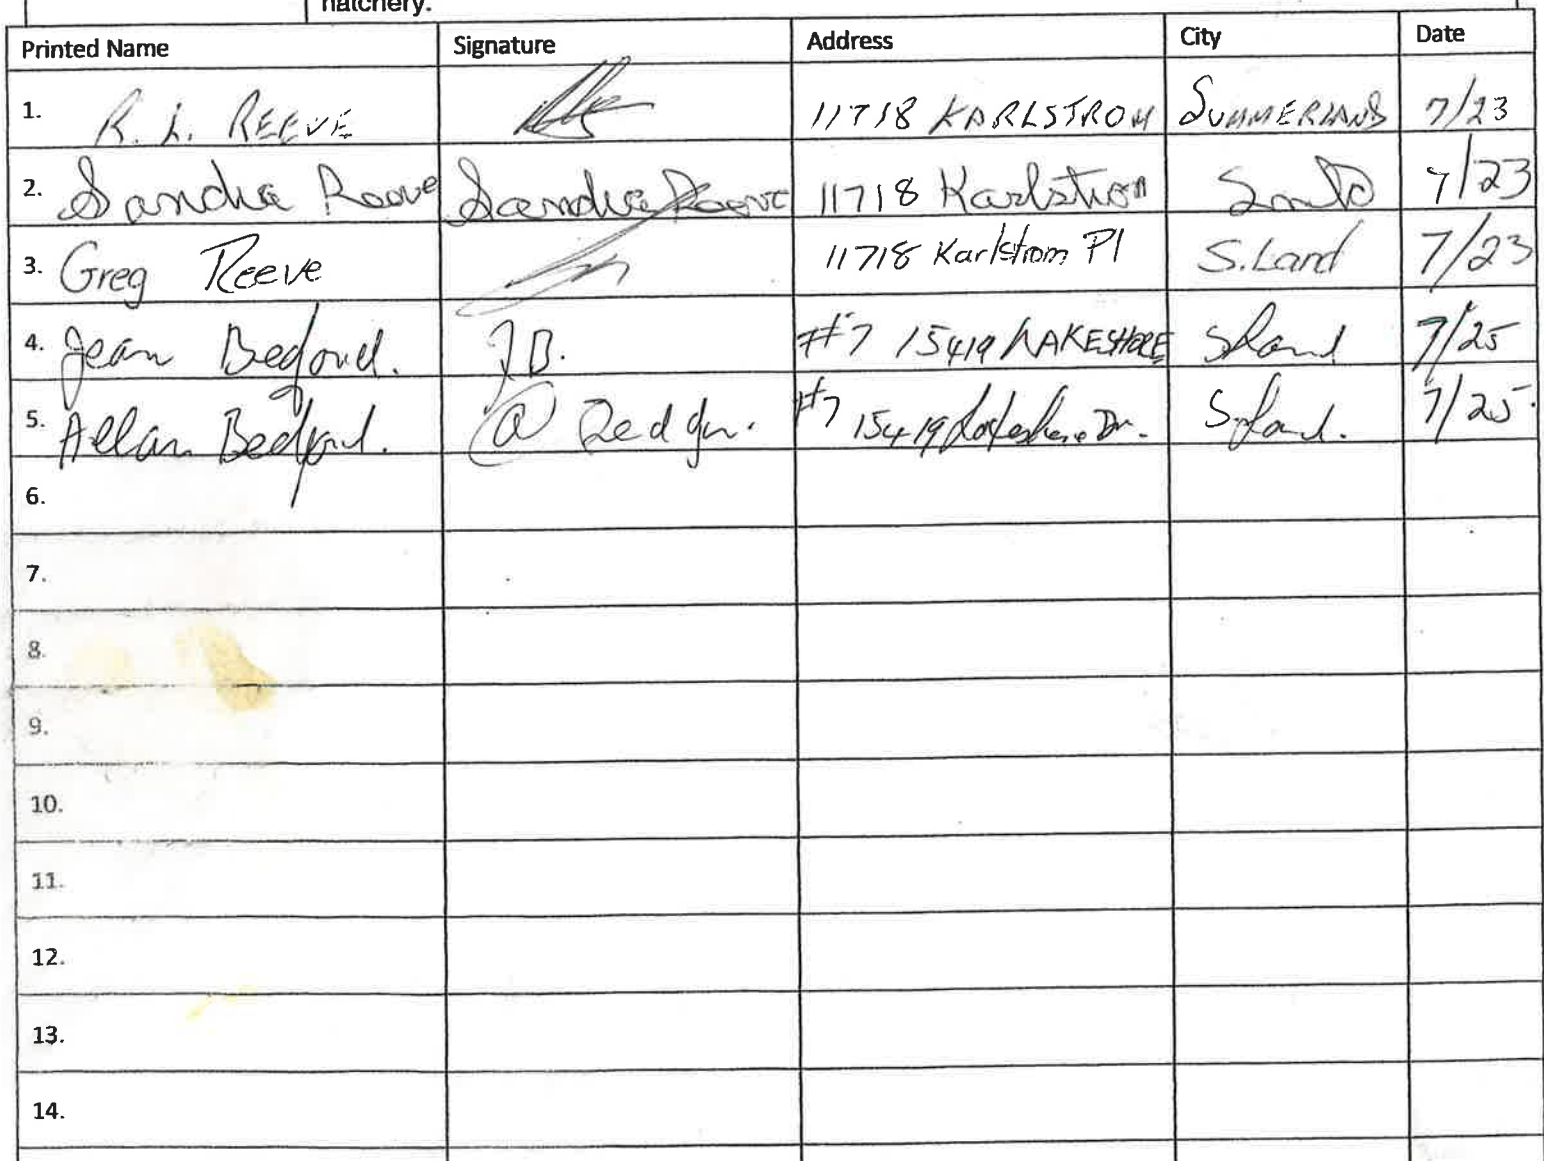 hatchery.
Printed Name Signature Address City Date
1. R. L. REEVE 11718 KARLSTROM SUMMERLAND 7/23
2. Sandra Reeve Sandra Reeve 11718 Karlstrom 7/23
3. Greg Reeve 11718 Karlstrom Pl S.Land 7/23
4. Jean Bedford. J B. #7 15419 LAKESHORE Sland 7/25
5. Allan Bedford. #7 15419 Lakeshore Dr. S'land. 7/25.
6.
7.
8.
9.
10.
11.
12.
13.
14.